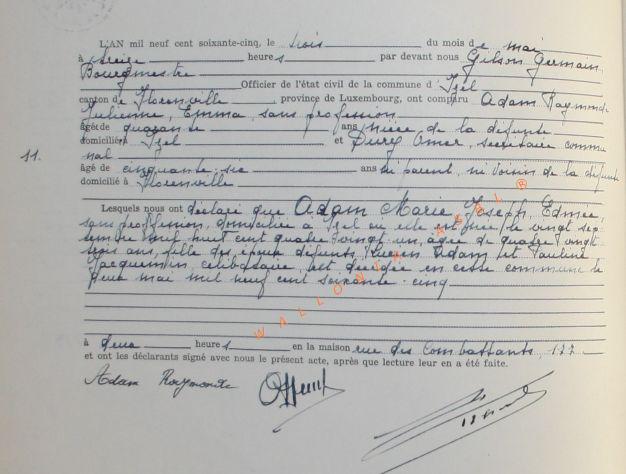 L'AN mil neuf cent soixante-cinq, le trois du mois de mai
à seize heures par devant nous Gilson Germain,
Bourgmestre
Officier de l'état civil de la commune d'Izel
canton de Florenville, province de Luxembourg, ont comparu Adam Raymonde
Julienne, Emma, sans profession
âgée de quarante ans nièce de la défunte
domiciliée à Izel et Dury Omer, secrétaire commu
11.
nal
âgé de cinquante-six ans ni parent, ni voisin de la défunte
domicilié à Florenville
Lesquels nous ont déclaré que Adam Marie, Joseph, Edmée,
sans profession, domiciliée à Izel où elle est née le vingt sep
tembre mil huit cent quatre-vingt-un, âgée de quatre-vingt-
trois ans, fille des époux défunts, Lucien Adam et Pauline
Jacquemin, célibataire, est décédée en cette commune le
deux mai mil neuf cent soixante-cinq
à deux heures en la maison rue des Combattants, 177
et ont les déclarants signé avec nous le présent acte, après que lecture leur en a été faite.
Adam Raymonde
WALLONIA ASBL ®